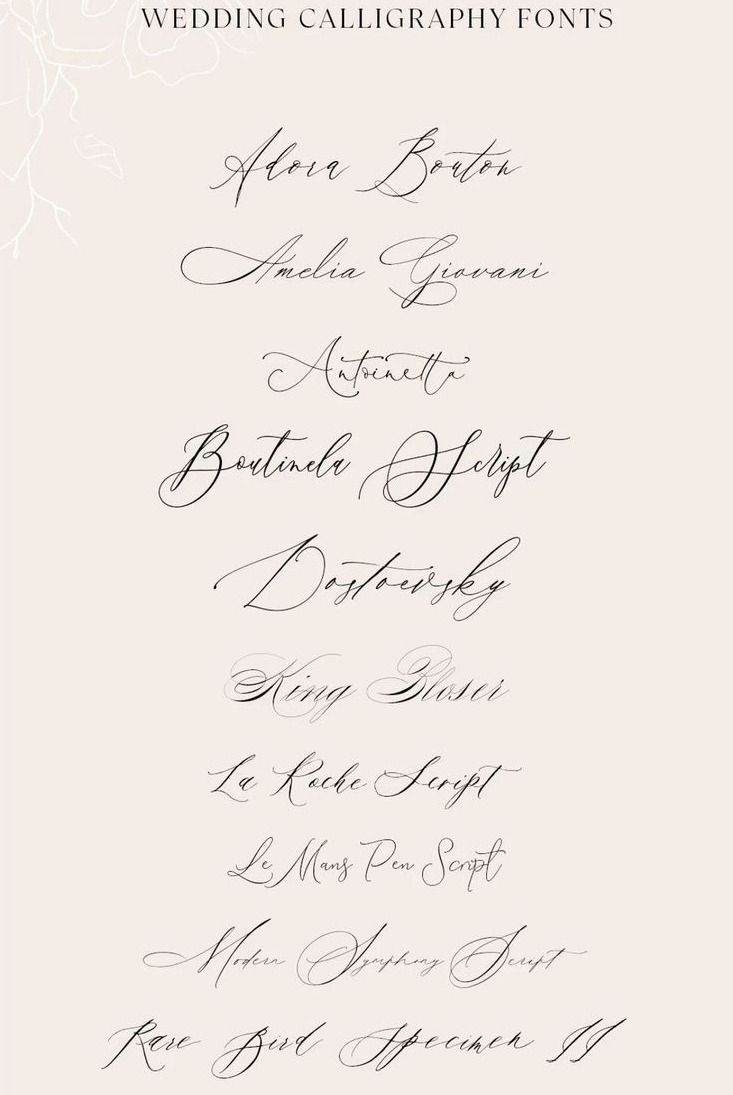 WEDDING CALLIGRAPHY FONTS
Adora Bouton
Amelia Giovani
Antoinetta
Boutinela Script
Dostoevsky
King Bloser
La Roche Script
Le Mans Pen Script
Modern Symphony Script
Rare Bird Specimen II